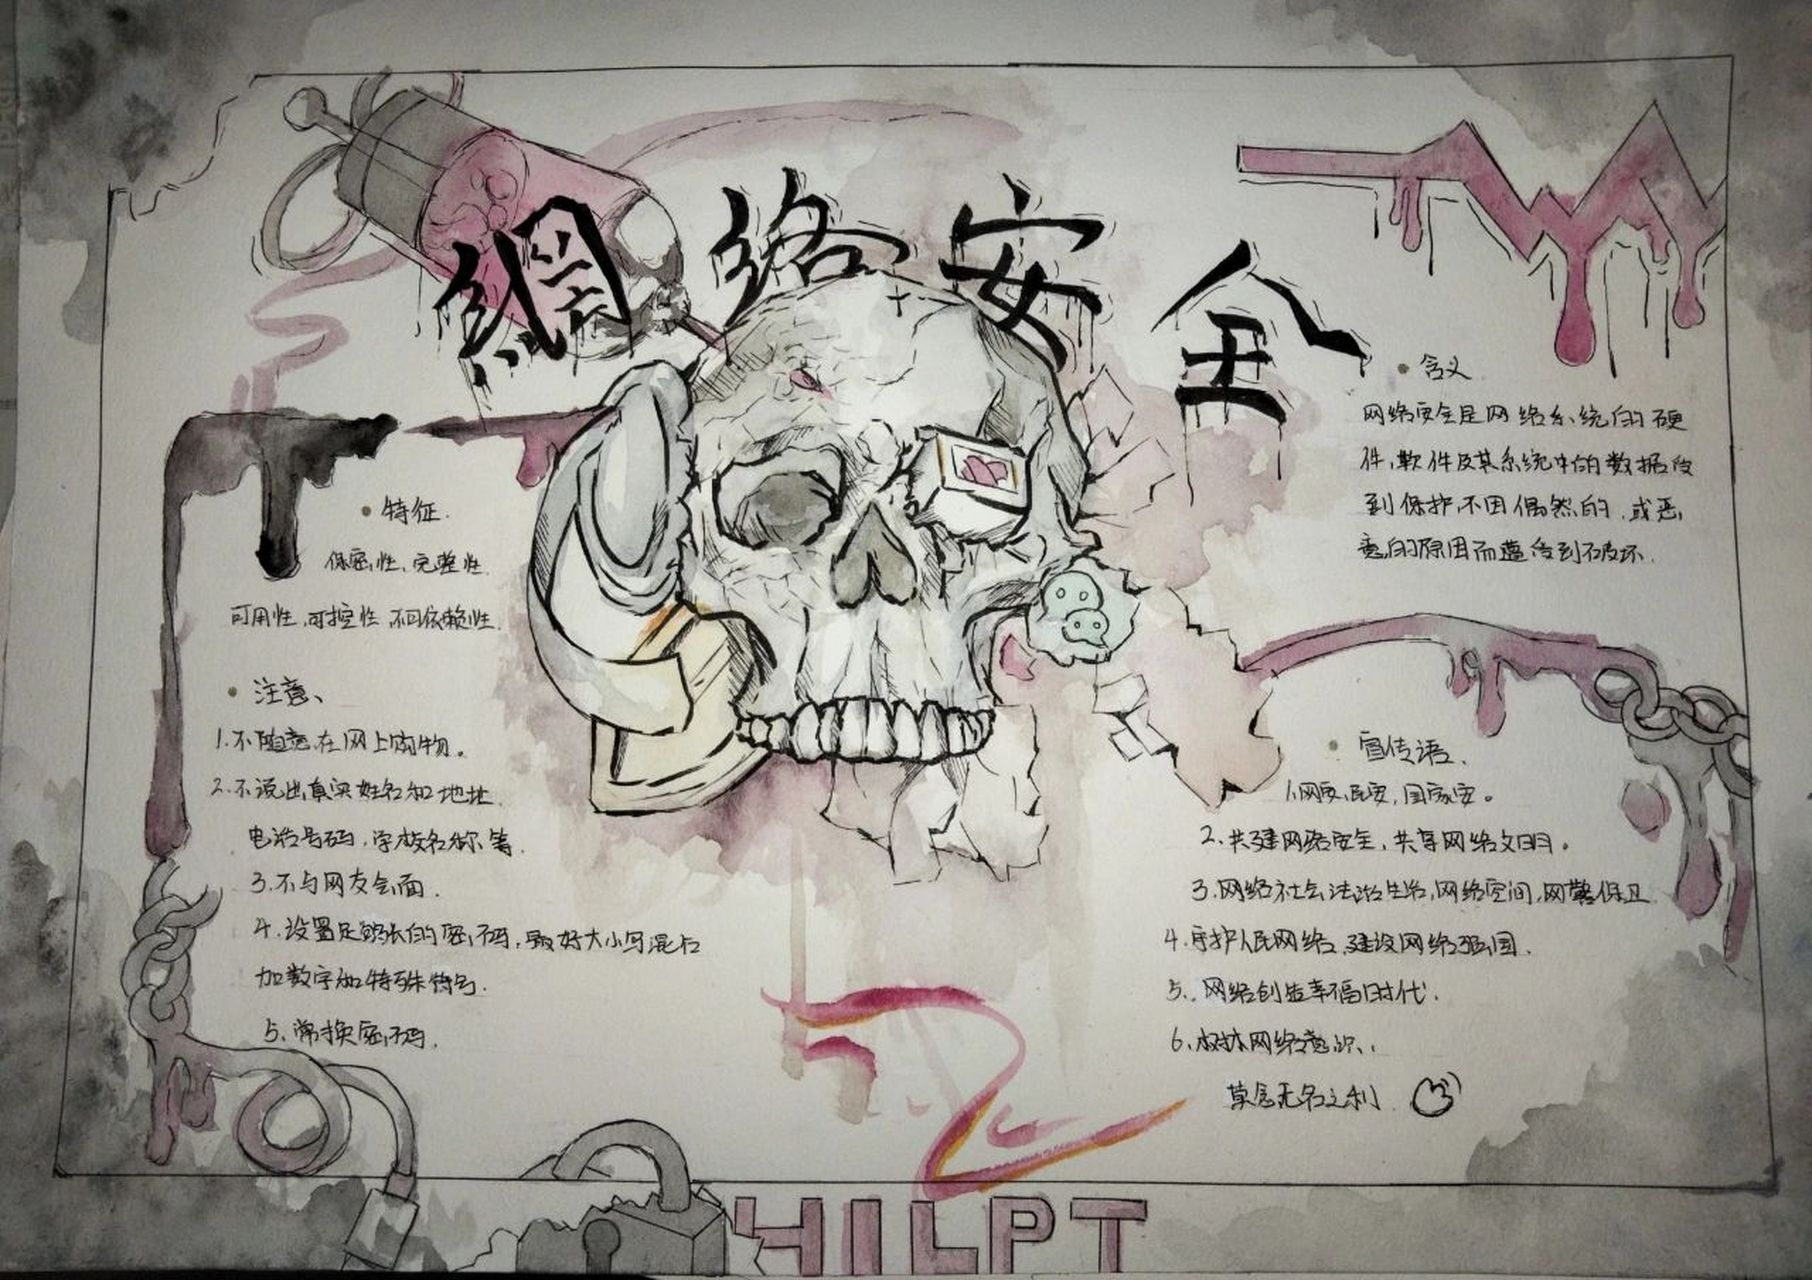 網络安全
特征.
保密性、完整性
可用性,可控性,不可依赖性.
注意、
1.不随意在网上购物。
2.不说出真实姓名和地址.
电话号码,学校名称等.
3.不与网友会面.
4.设置足够长的密码,最好大小写混合
加数字和特殊符号.
5.常换密码.
含义
网络安全是网络系统的硬
件,軟件及其系统中的数据受
到保护,不因偶然的,或恶
意的原因而遭受到破坏.
宣传语、
1.网安,民安,国家安。
2.共建网络安全,共享网络文明。
3.网络社会法治生活,网络空间,网警保卫
4.守护人民网络,建设网络强国.
5.网络创造幸福时代.
6.树林网络意识、
莫念无名之利
HILPT